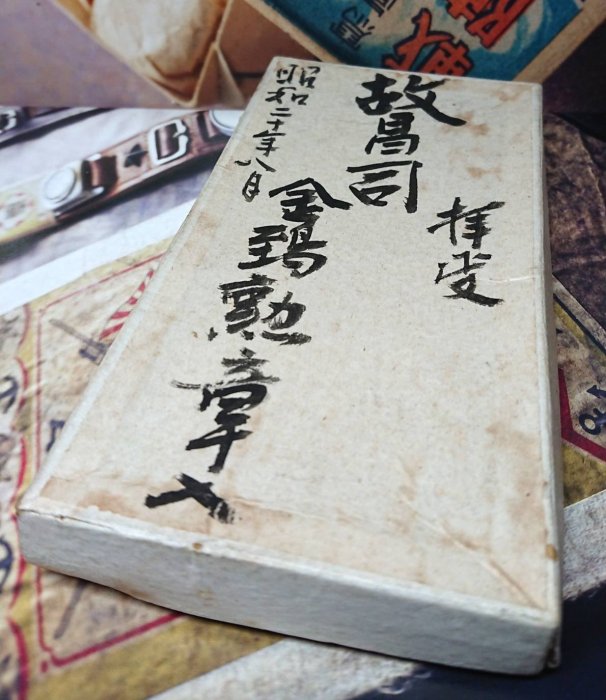 故昌司
拝受
金鵄勲章入
昭和二十年八月